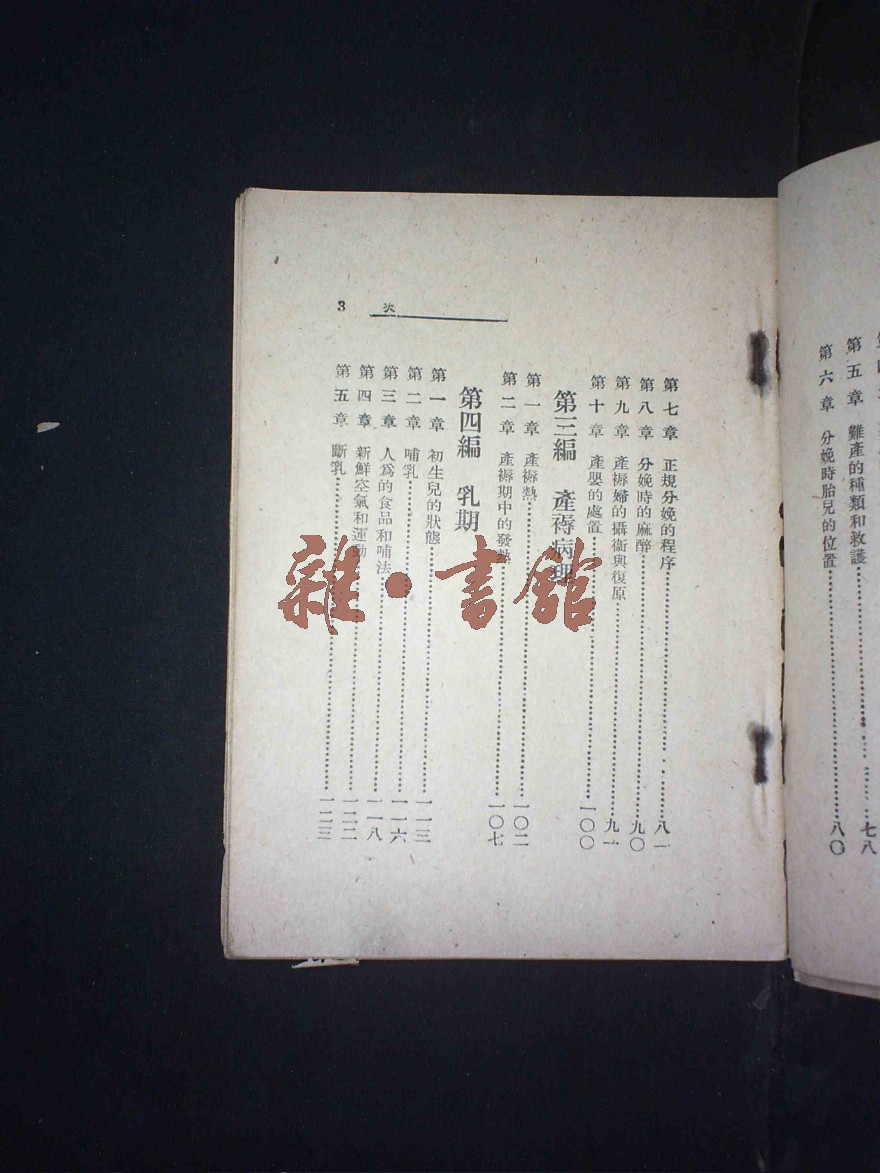 第五章 難產的種類和救護 七八
第六章 分娩時胎兒的位置 八〇
第七章 正規分娩的程序 八一
第八章 分娩時的麻醉 九〇
第九章 產褥婦的攝衞與復原 九一
第十章 產嬰的處置 一〇〇
第三編 產褥病理
第一章 產褥熱 一〇二
第二章 產褥期中的發熱 一〇七
第四編 乳期
第一章 初生兒的狀態 一一三
第二章 哺乳 一一六
第三章 人爲的食品和哺法 一一八
第四章 新鮮空氣和運動 一二二
第五章 斷乳 一二三
次
3
雜·書館